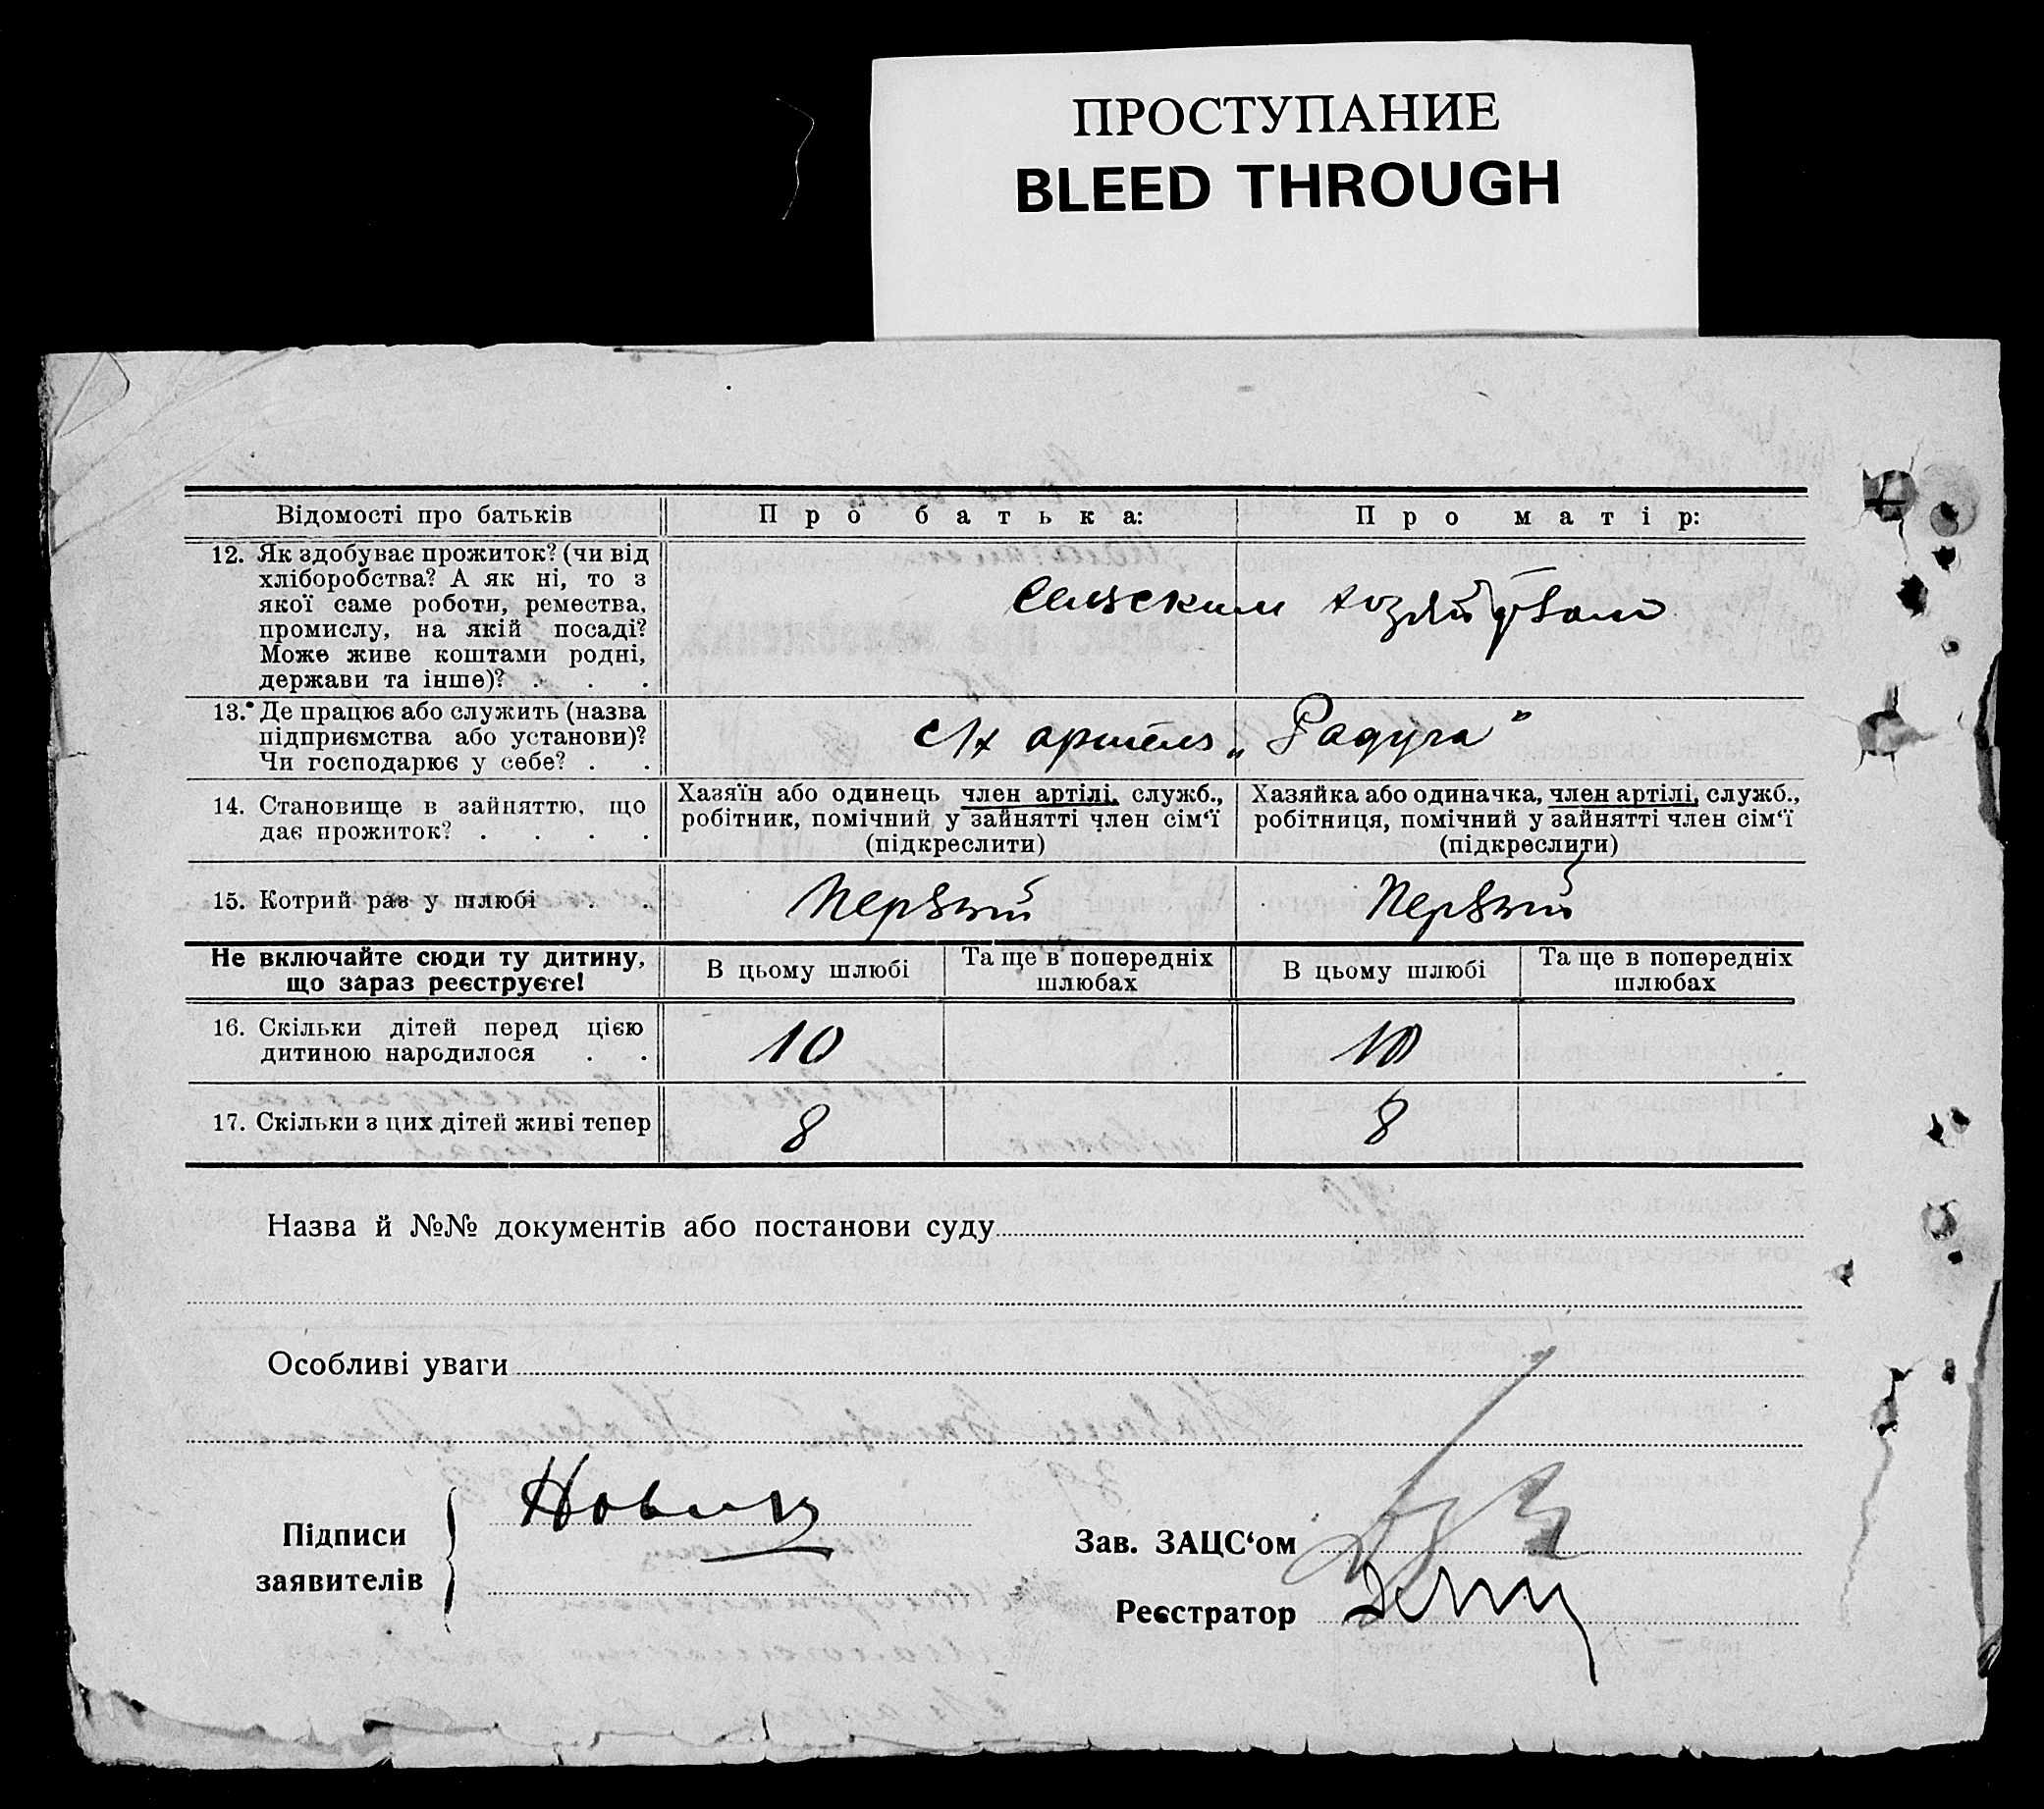 ПРОСТУПАНИЕ
BLEED THROUGH
Відомості про батьків
Про батька:
Про матір:
12. Як здобуває прожиток? (чи від
хліборобства? А як ні, то з
якої саме роботи, ремества,
промислу, на якій посаді?
Може живе коштами родні,
держави та інше)? . . .
Сельским хозяйством
13. Де працює або служить (назва
підприємства або установи)?
Чи господарює у себе? . .
с/х артель „Радуга"
14. Становище в зайняттю, що
дає прожиток? . . . .
Хазяїн або одинець, член артілі, служб.,
робітник, помічний у зайнятті член сім'ї
(підкреслити)
Хазяйка або одиначка, член артілі, служб.,
робітниця, помічний у зайнятті член сім'ї
(підкреслити)
15. Котрий раз у шлюбі . .
Первый
Первый
Не включайте сюди ту дитину,
що зараз реєструєте!
В цьому шлюбі
Та ще в попередніх
шлюбах
В цьому шлюбі
Та ще в попередніх
шлюбах
16. Скільки дітей перед цією
дитиною народилося . .
10
10
17. Скільки з цих дітей живі тепер
8
8
Назва й №№ документів або постанови суду
Особливі уваги
Підписи
заявителів
Зав. ЗАЦС'ом
Реєстратор